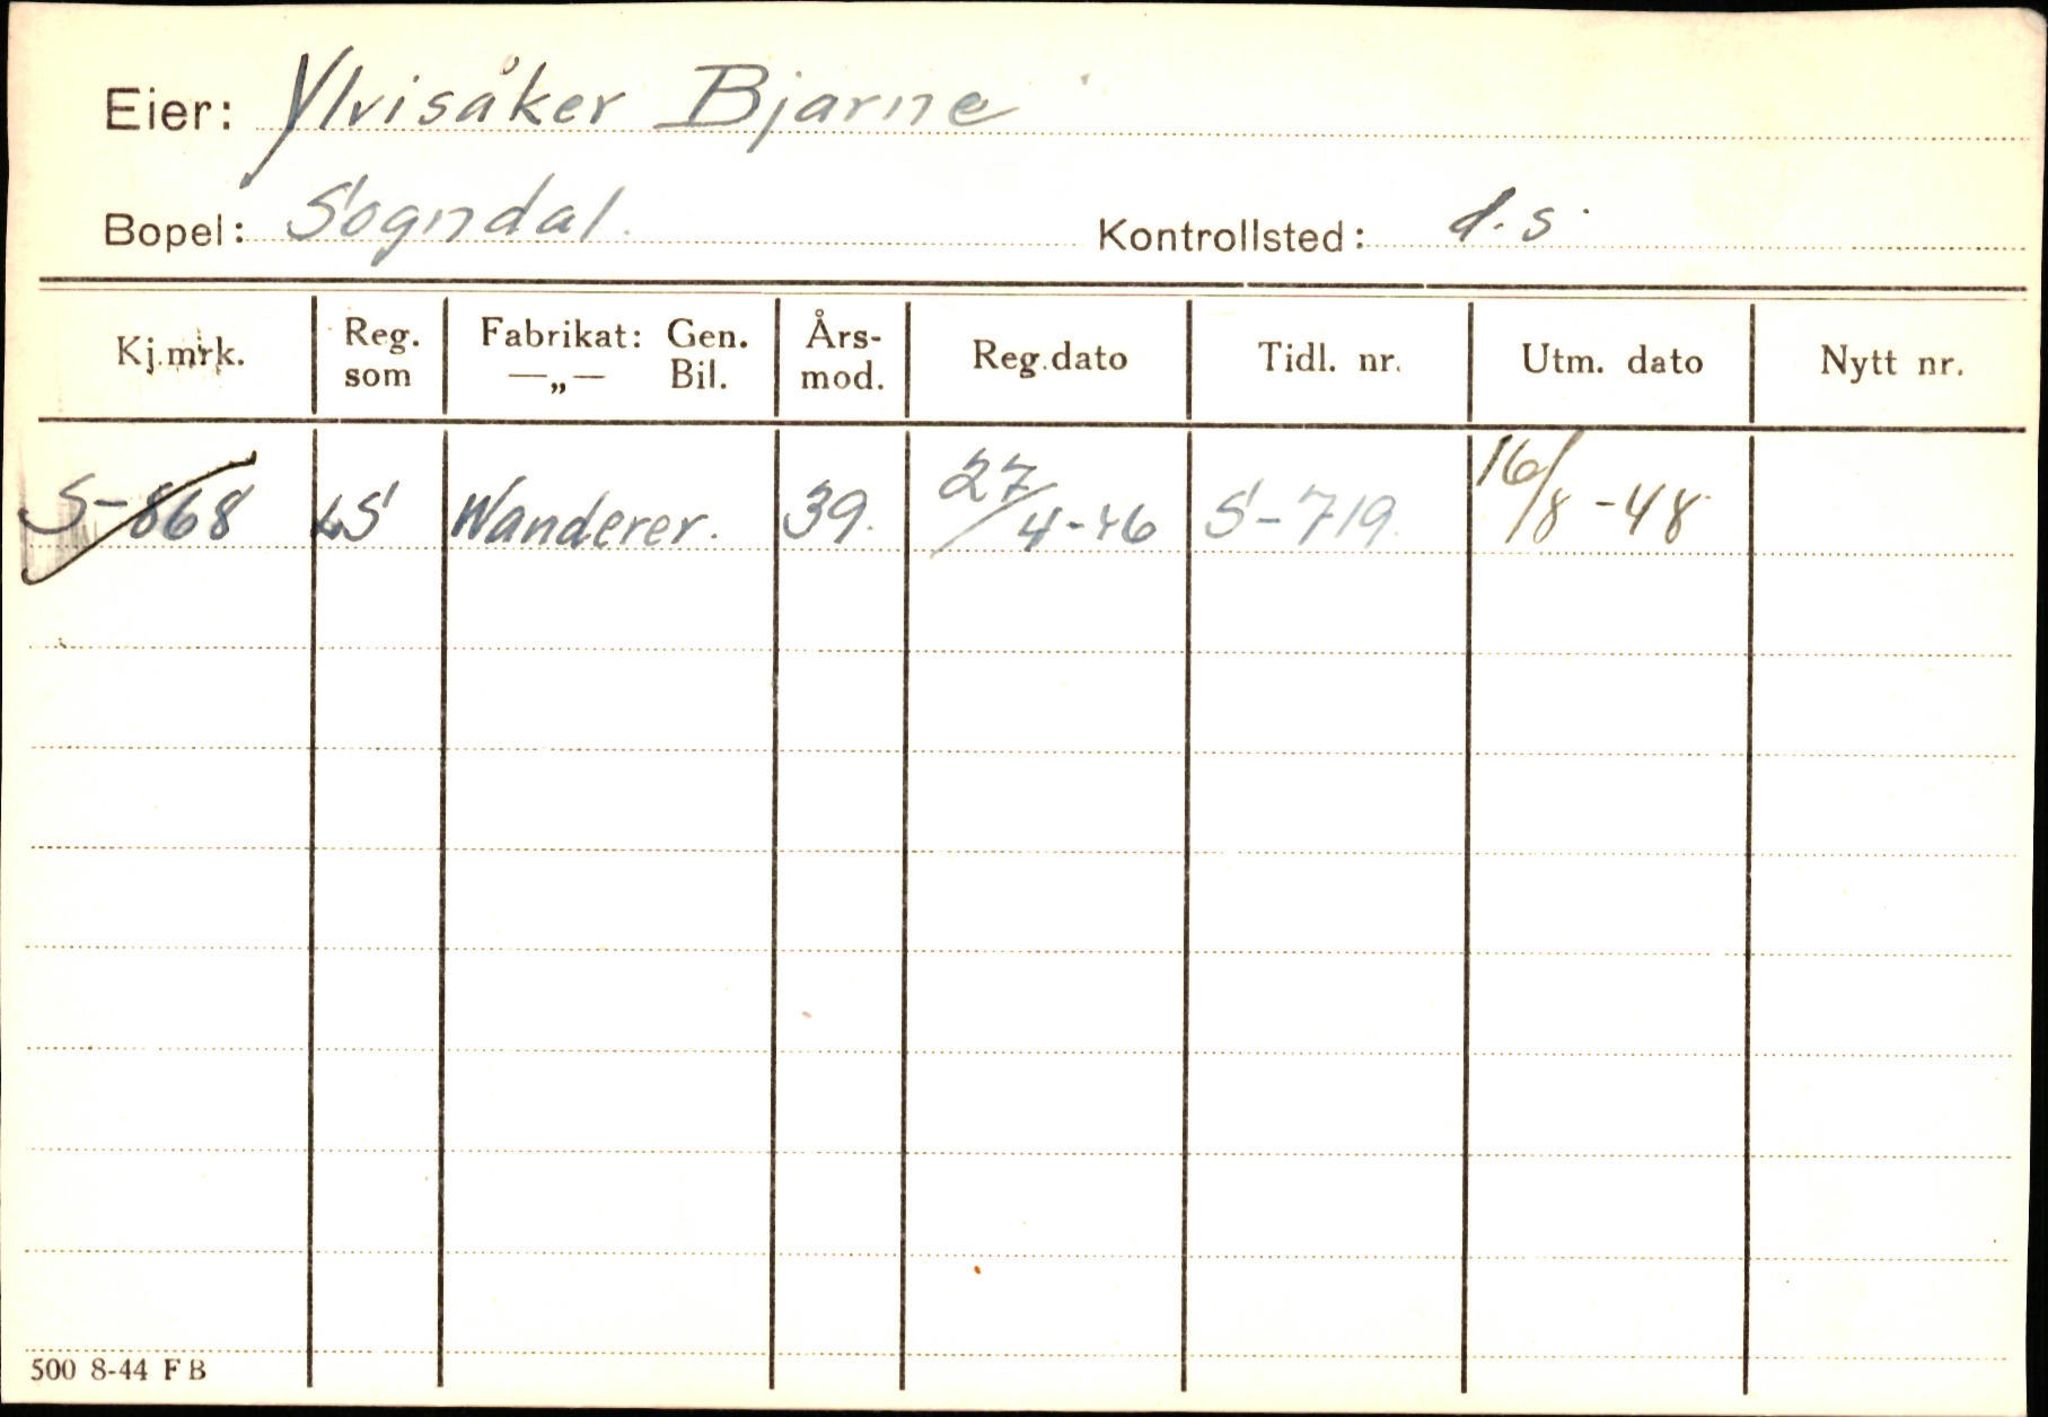 Eier: Ylvisåker Bjarne
Bopel: Sogndal. Kontrollsted: d.s.
Kj.mrk. Reg. som Fabrikat: Gen. —„— Bil. Års-mod. Reg.dato Tidl. nr. Utm. dato Nytt nr.
S-868 LS Wanderer. 39. 27/4-46 S-719. 16/8-48
500 8-44 FB